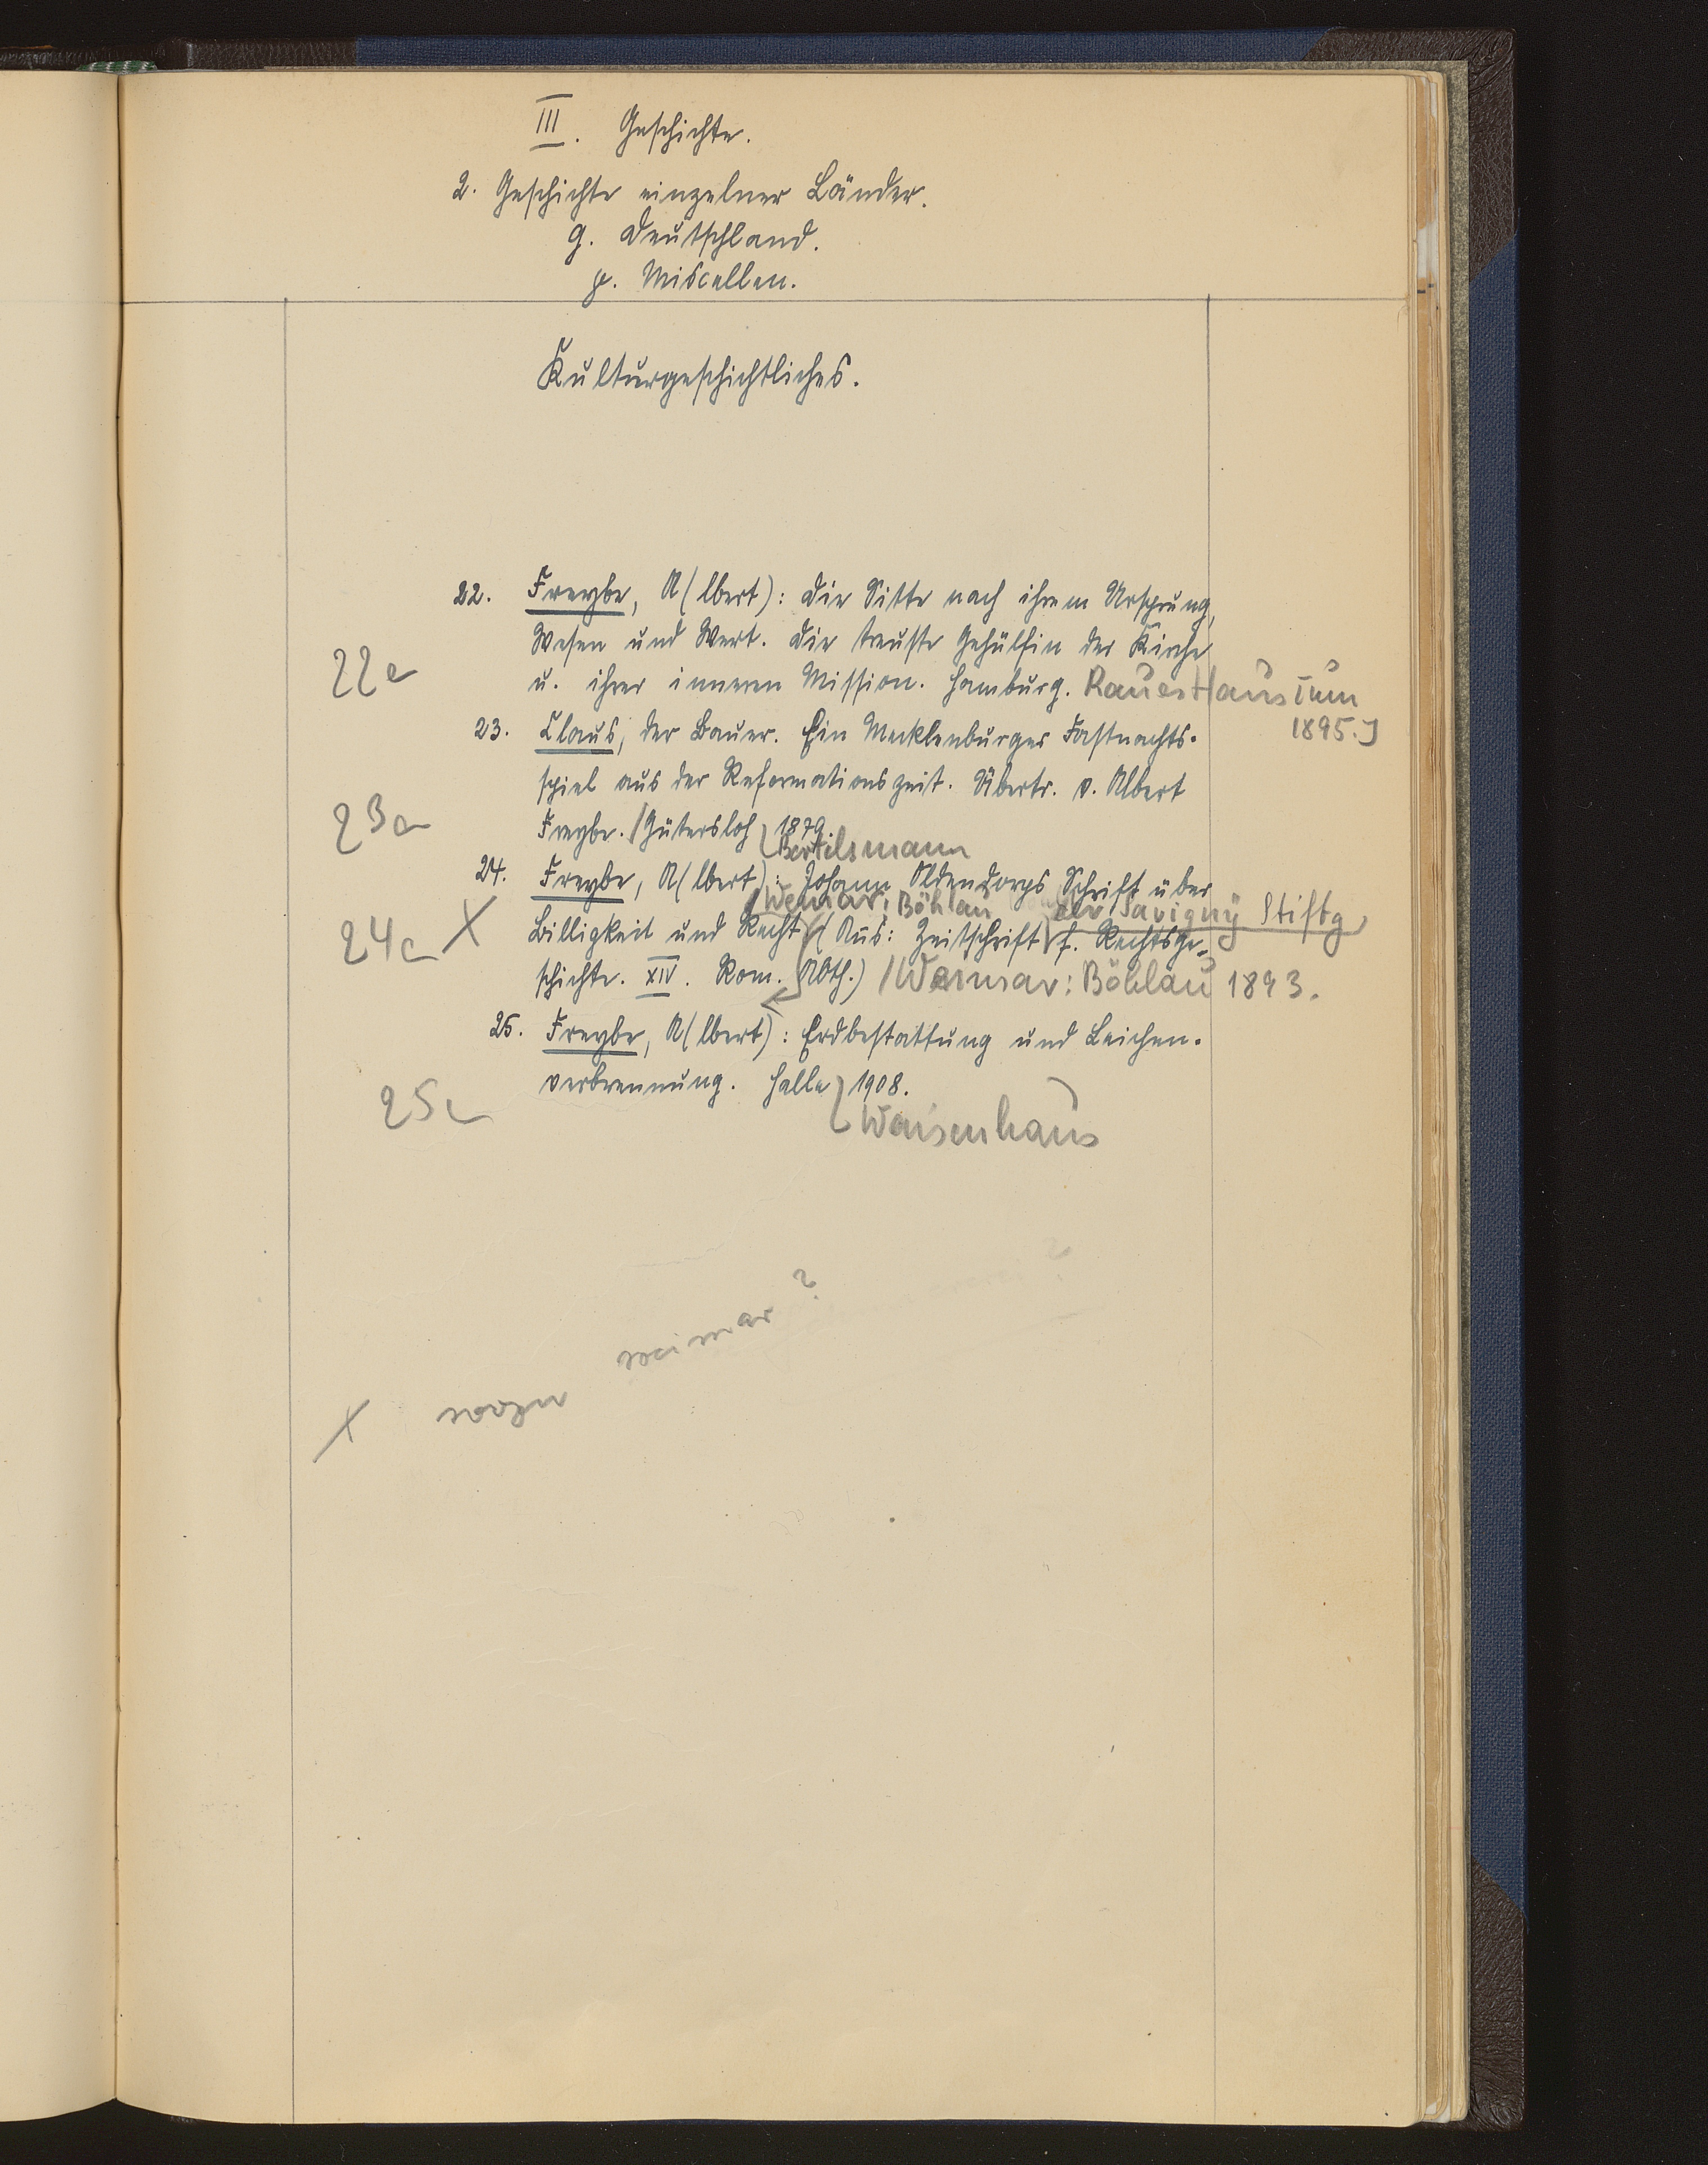 III. Geschichte.
2. Geschichte einzelner Länder.
g. Deutschland.
p. Miscellen.
Kulturgeschichtliches.
22. Freybe, A(lbert): Die Sitte nach ihrem Ursprung,
Wesen und Wert. Die treuste Gehülfin der Kirche
22a
u. ihrer inneren Mission. Hamburg. Raues Haus
1895.]
23. Claus, der Bauer. Ein Mecklenburger Fastnachts-
spiel aus der Reformationszeit. Übertr. v. Albert
23a
Freybe. /Gütersloh 1879.
Bertelsmann
24. Freybe, A(lbert): Johann Oldendorps Schrift über
Weimar: Böhlau der Savigny Stiftg
24a X
Billigkeit und Recht (Aus: Zeitschrift f. Rechtsge-
schichte. XIV. Rom. Abth.) /Weimar: Böhlau 1893.
25. Freybe, A(lbert): Erdbestattung und Leichen-
verbrennung. Halle 1908.
25a
Waisenhaus
weimar?
X wozu